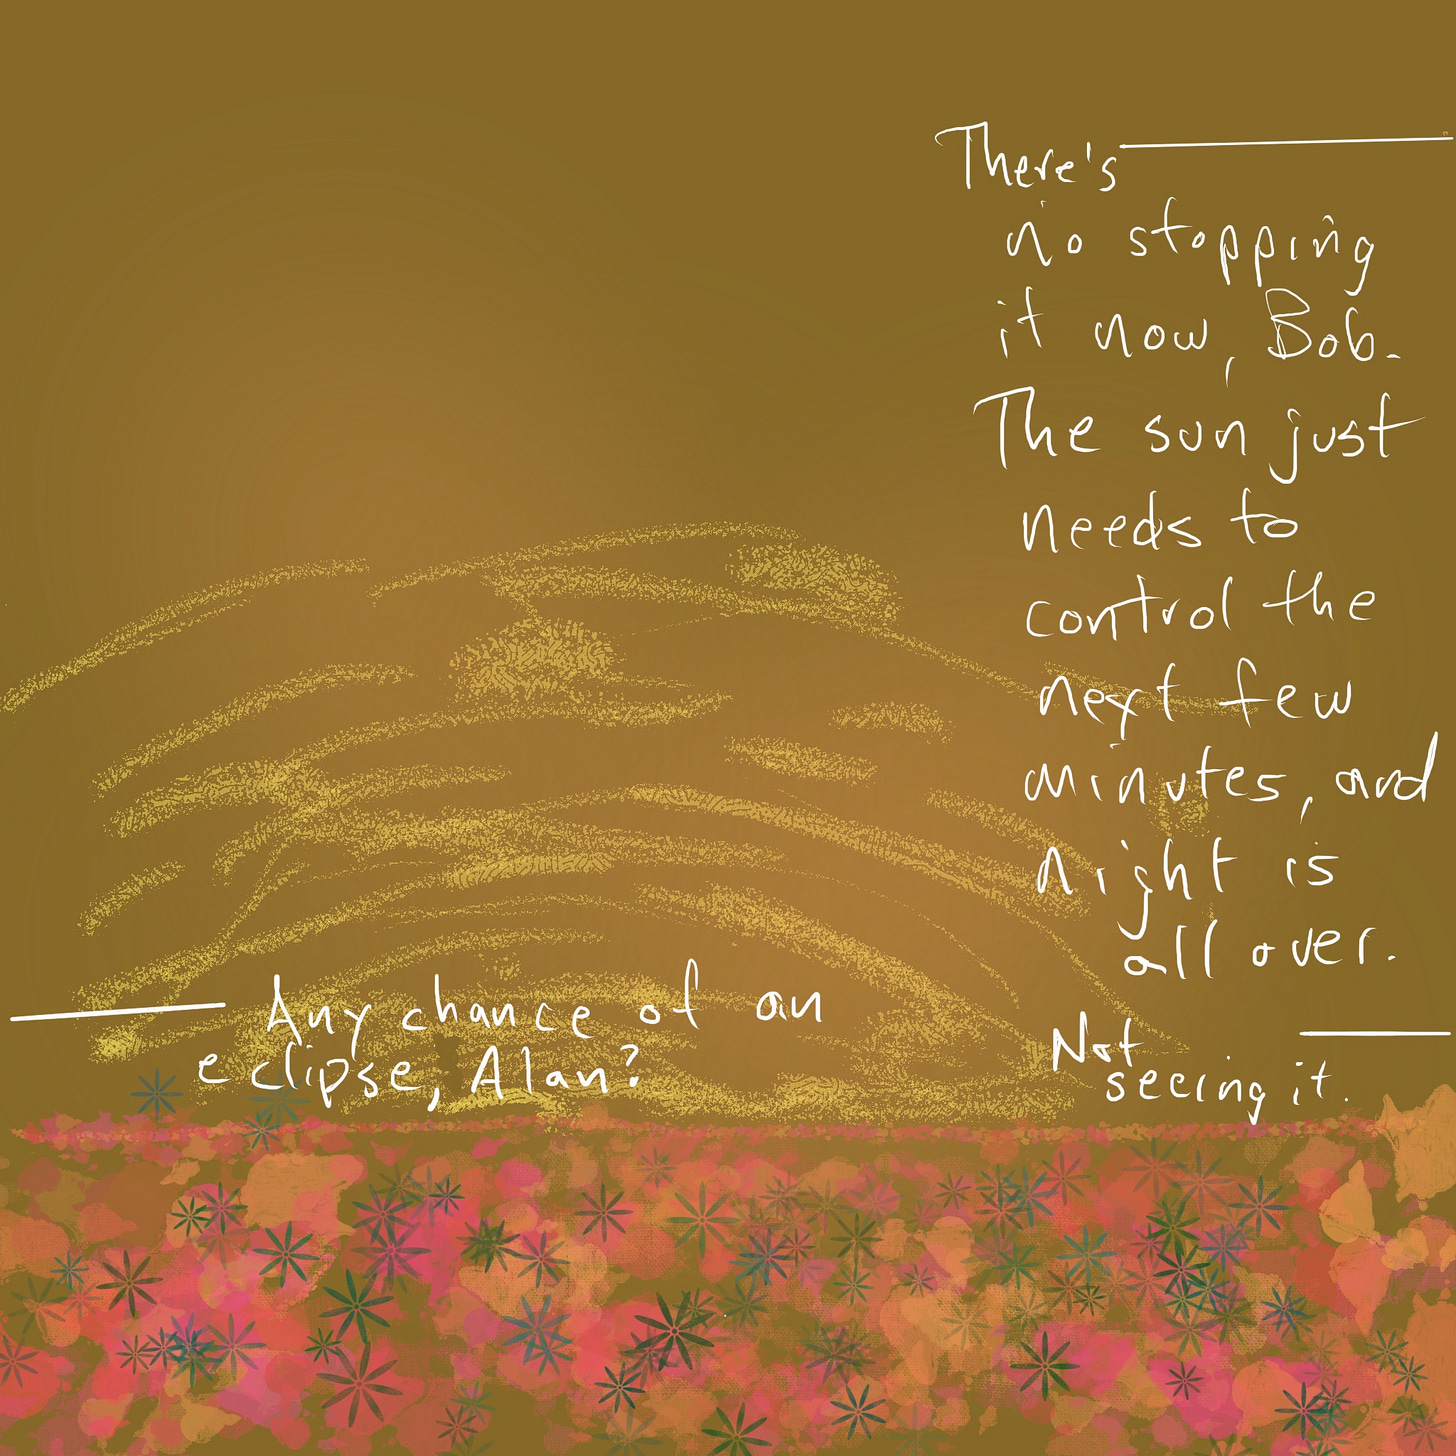 There's
no stopping
it now, Bob.
The sun just
needs to
control the
next few
minutes, and
night is
all over.
Any chance of an
eclipse, Alan?
Not
seeing it.